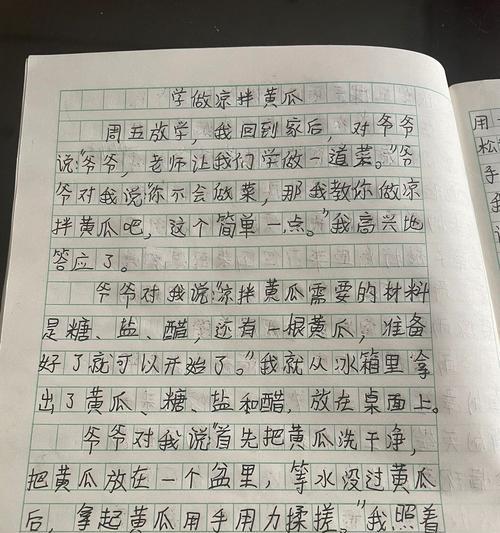 学做凉拌黄瓜
周五放学，我回到家后，对爷爷
说：“爷爷，老师让我们学做一道菜。”爷
爷对我说：“你不会做菜，那我教你做凉
拌黄瓜吧，这个简单一点。”我高兴地
答应了。
爷爷对我说：“凉拌黄瓜需要的材料
是糖、盐、醋，还有一根黄瓜，准备
好了就可以开始了。”我就从冰箱里拿
出了黄瓜、糖、盐和醋，放在桌面上。
爷爷对我说：“首先把黄瓜洗干净，
把黄瓜放在一个盆里，等水没过黄瓜
后，拿起黄瓜用手用力揉搓。”我照着
用一
松
手
我